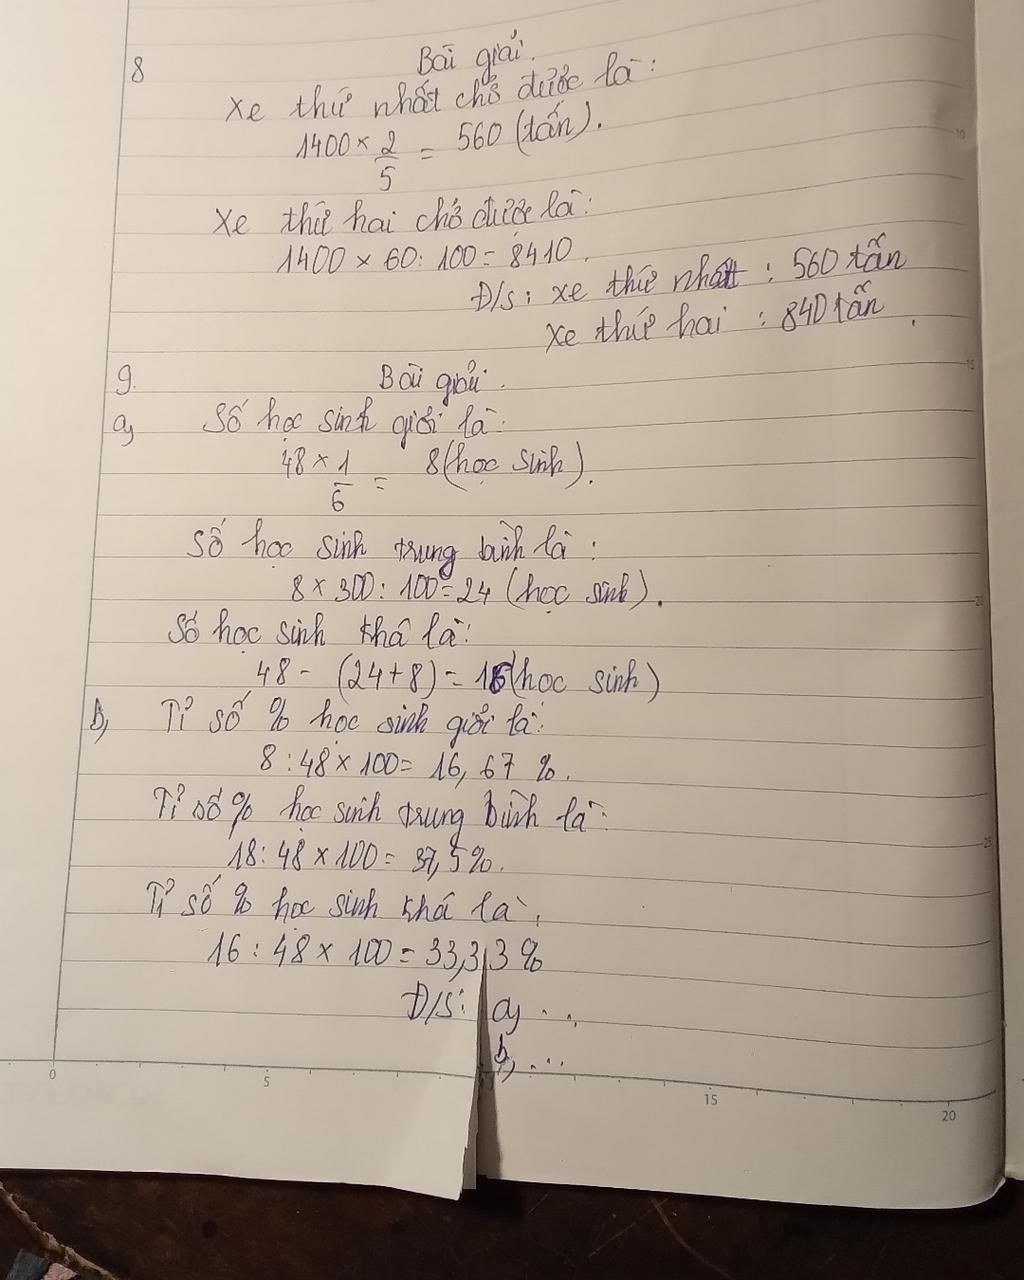 8 Bài giải.
Xe thứ nhất chở được là:
1400 × 2/5 = 560 (tấn).
Xe thứ hai chở được là:
1400 × 60 : 100 = 8410.
Đ/s: xe thứ nhất : 560 tấn
Xe thứ hai : 840 tấn.
9. Bài giải.
a, Số học sinh giỏi là:
48 × 1/6 = 8 (học sinh).
Số học sinh trung bình là:
8 × 300 : 100 = 24 (học sinh).
Số học sinh khá là:
48 - (24+8) = 16 (học sinh)
b, Tỉ số % học sinh giỏi là:
8 : 48 × 100 = 16,67 %.
Tỉ số % học sinh trung bình là:
18 : 48 × 100 = 37,5 %.
Tỉ số % học sinh khá là,
16 : 48 × 100 = 33,33 %
Đ/S: a, ...
b, ...
0 5 15 20
10
15
20
25